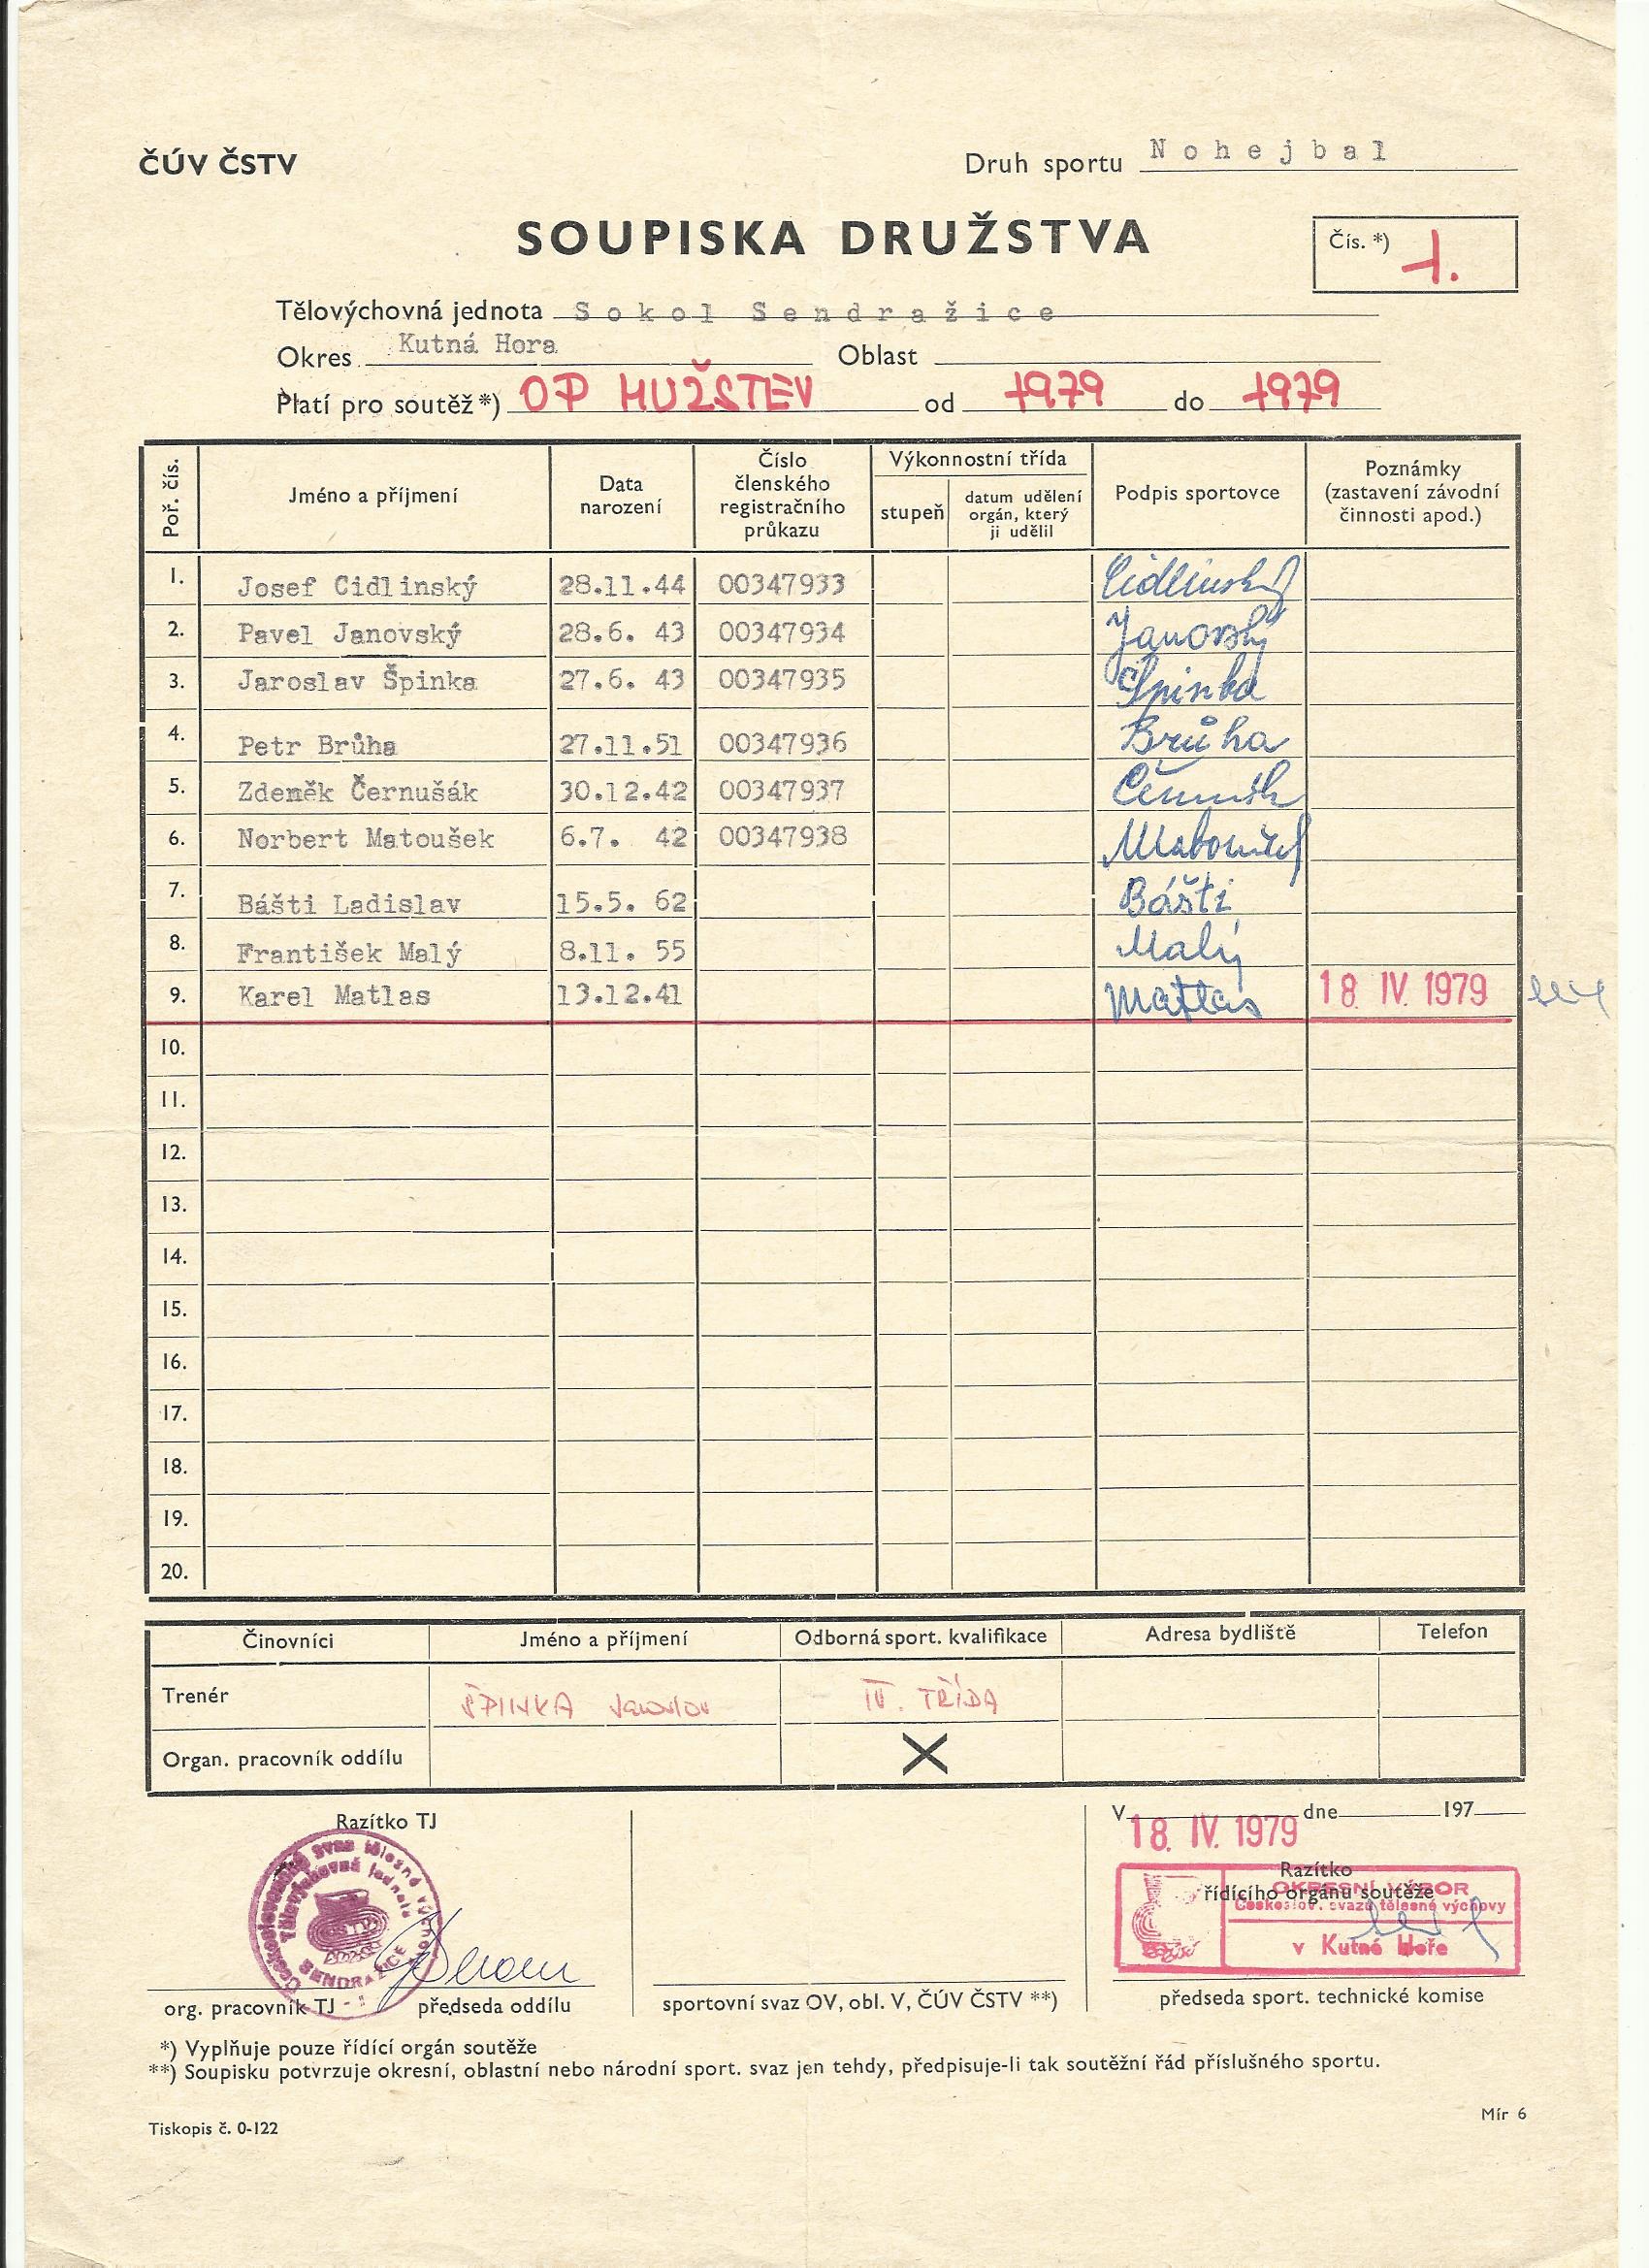 ČÚV ČSTV
Druh sportu Nohejbal
SOUPISKA DRUŽSTVA
Čís. *) 1.
Tělovýchovná jednota Sokol Sendražice
Okres Kutná Hora Oblast
Platí pro soutěž *) OP MUŽSTEV od 1979 do 1979
Poř. čís. Jméno a příjmení Data narození Číslo členského registračního průkazu Výkonnostní třída stupeň datum udělení orgán, který ji udělil Podpis sportovce Poznámky (zastavení závodní činnosti apod.)
1. Josef Cidlinský 28.11.44 00347933 Cidlinský
2. Pavel Janovský 28.6. 43 00347934 Janovský
3. Jaroslav Špinka 27.6. 43 00347935 Špinka
4. Petr Brůha 27.11.51 00347936 Brůha
5. Zdeněk Černušák 30.12.42 00347937
6. Norbert Matoušek 6.7. 42 00347938 Matoušek
7. Bášti Ladislav 15.5. 62 Bášti
8. František Malý 8.11. 55 Malý
9. Karel Matlas 13.12.41 Matlas 18. IV. 1979
10.
11.
12.
13.
14.
15.
16.
17.
18.
19.
20.
Činovníci Jméno a příjmení Odborná sport. kvalifikace Adresa bydliště Telefon
Trenér ŠPINKA Jaroslav IV. TŘÍDA
Organ. pracovník oddílu X
Razítko TJ
V dne 197
18. IV. 1979
Československý svaz tělesné výchovy
Tělovýchovná jednota
SENDRAŽICE
Razítko
řídícího orgánu soutěže
OKRESNÍ VÝBOR
Českoslov. svazu tělesné výchovy
v Kutné Hoře
org. pracovník TJ předseda oddílu sportovní svaz OV, obl. V, ČÚV ČSTV **) předseda sport. technické komise
*) Vyplňuje pouze řídící orgán soutěže
**) Soupisku potvrzuje okresní, oblastní nebo národní sport. svaz jen tehdy, předpisuje-li tak soutěžní řád příslušného sportu.
Tiskopis č. 0-122
Mír 6